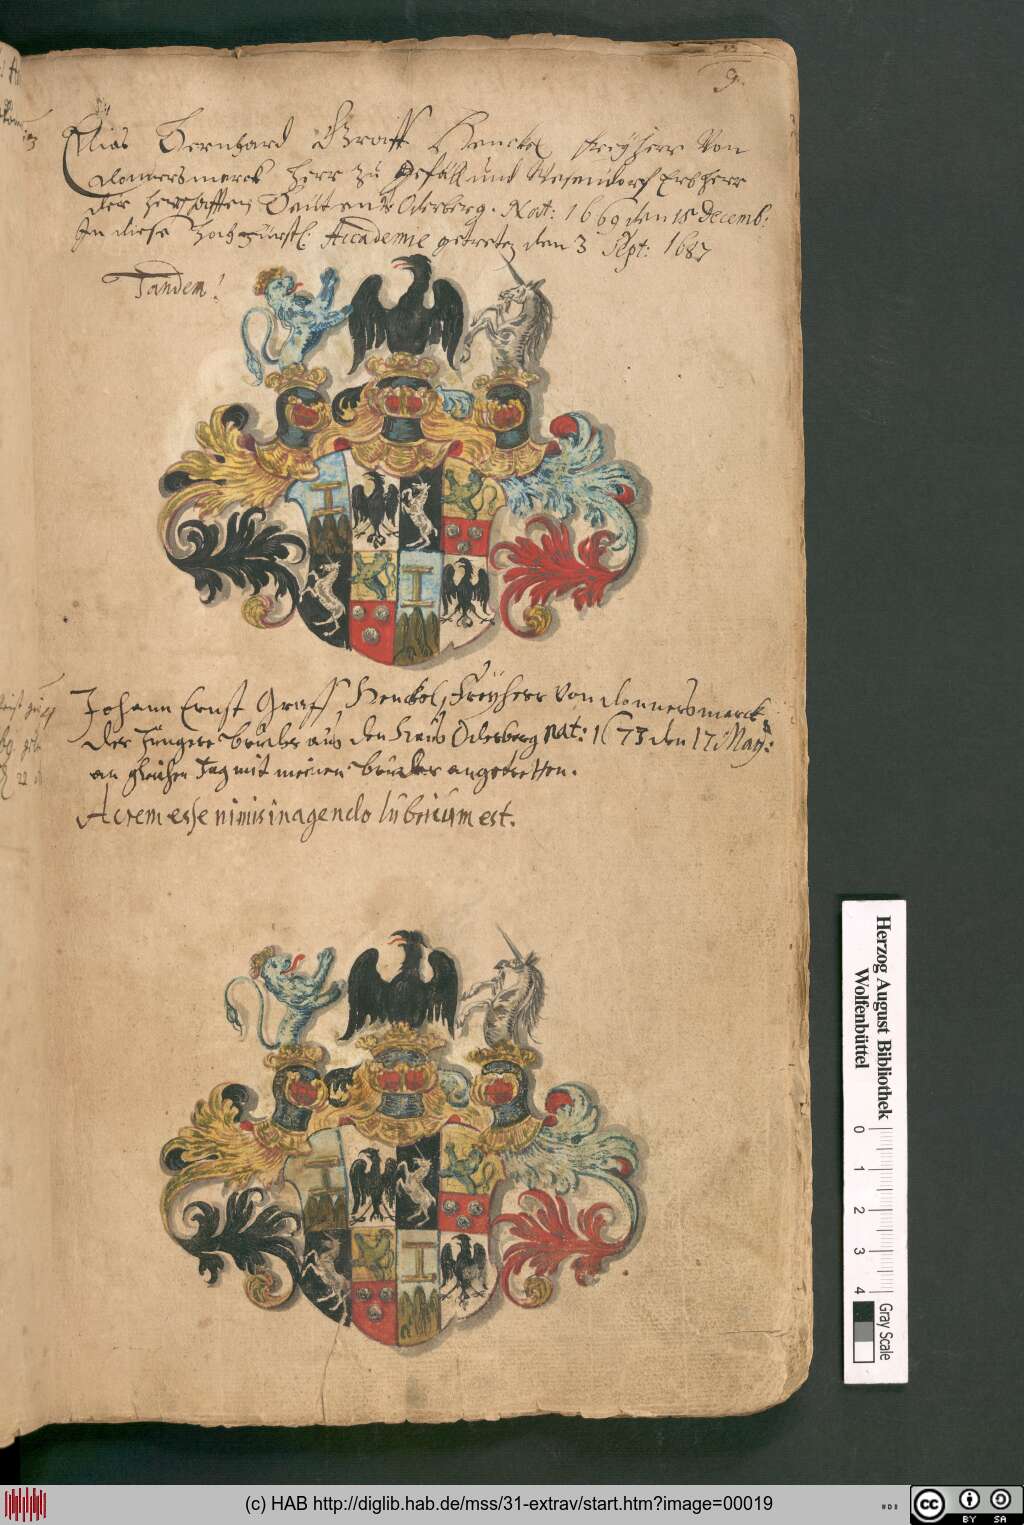 9.
Elias Bernhard Graff Henckel Freÿherr Von
Donnersmarck Herr zu Gefäll und Wesendorf Erbherr
der herschafften Beut: und Oderberg. Nat: 1669 den 15 Decemb:
In diese hochfürstl: Accademie getreten den 3 Sept: 1687
Tandem!
Johann Ernst Graff, Henckel, Freÿherr von donnersmarck
der jüngere bruder aus den Haus Oderberg nat: 1673 den 17 Maÿ:
an gleichen Tag mit meinem bruder angetretten.
Acrem esse nimis in agendo lubricum est.
Herzog August Bibliothek
Wolfenbüttel
0 1 2 3 4
Gray Scale
(c) HAB http://diglib.hab.de/mss/31-extrav/start.htm?image=00019
cc BY SA